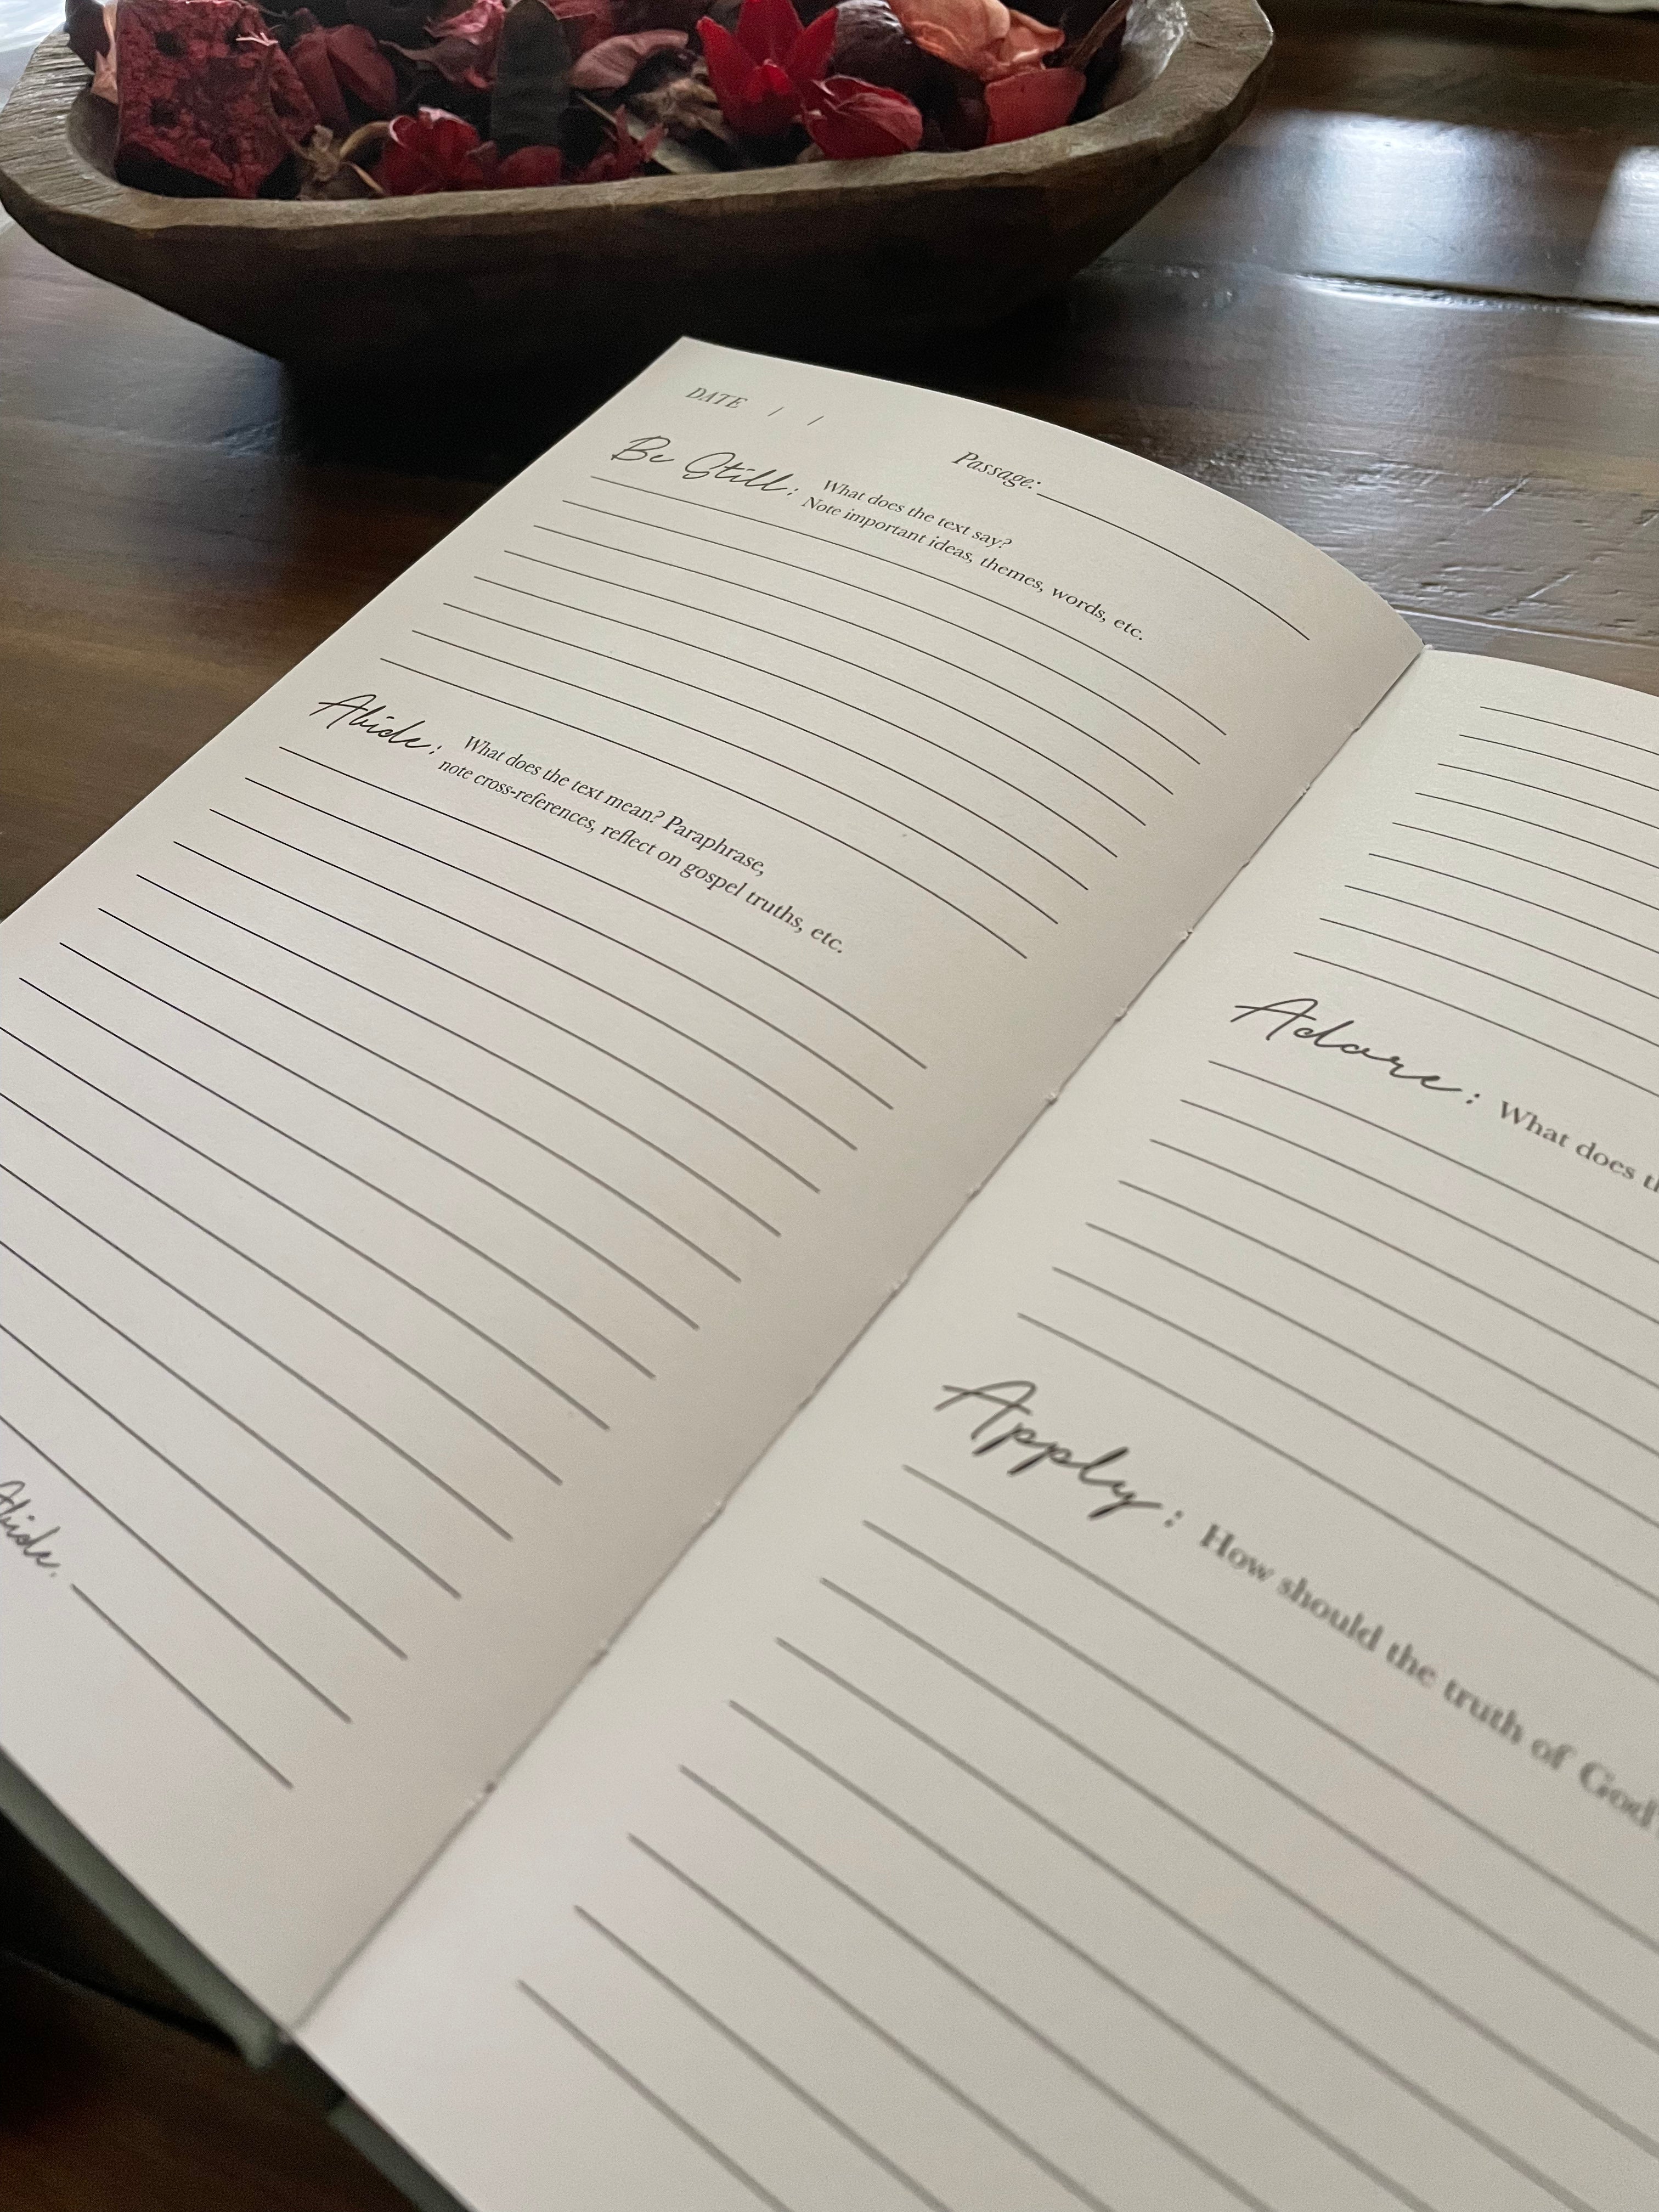 DATE / /
Passage:
Be Still: What does the text say?
Note important ideas, themes, words, etc.
Abide: What does the text mean? Paraphrase,
note cross-references, reflect on gospel truths, etc.
Abide.
Adore: What does
Apply: How should the truth of God'